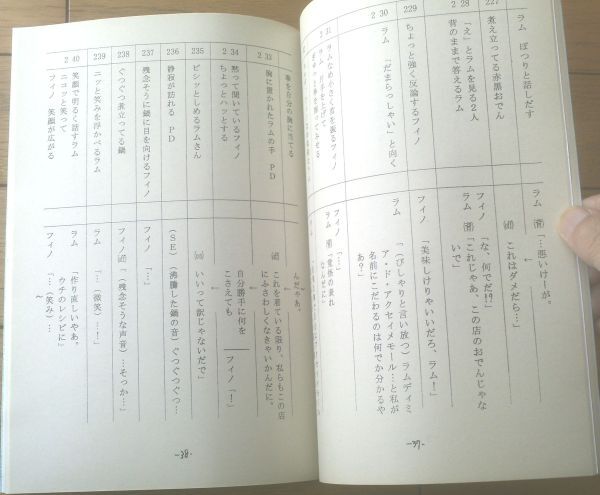 ラム ぽつりと話しだす
ラム(背)「…悪いけーが。
227
煮え立ってる赤黒おでん
(off) これはダメだら…」
228
「え」とラムを見る2人
背のままで答えるラム
フィノ「な、何でだ!?」
ラム(背)「これじゃあ、この店のおでんじゃないで」
229
ちょっと強く反論するフィノ
フィノ「美味しけりゃいいだろ、ラム!」
230
ラム 「だまらっしゃい」と向く
ラム「(ぴしゃりと言い放つ)ラムディミア・ド・アクセイメモール…と私が名前にこだわるのは何でか分かるやあ?」
231
フィノ「…」
-37-
んだやあ。
拳を自分の胸に当てる
233
胸に置かれたラムの手 PD
(off) これを着ている限り、私らもこの店にふさわしくなきゃいかんだに。
234
黙って聞いているフィノ
ちょっとハッとする
自分勝手に何をこさえても
フィノ「!」
235
ピシッとしめるラムさん
(on) いいって訳じゃないだで」
236
静寂が訪れる PD
(SE)(沸騰した鍋の音)ぐつぐつぐつ…
237
残念そうに鍋に目を向けるフィノ
フィノ「…」
238
ぐつぐつ煮立ってる鍋
フィノ(off)「(残念そうな声音)…そっか…」
239
ニッと笑みを浮かべるラム
ラム「…(微笑)…!」
240
笑顔で明るく話すラム
ニコッと笑って
フィノ 笑顔が広がる
ラム「作り直しいやあ。ウチのレシピに」
フィノ「…(笑み)…」
-38-